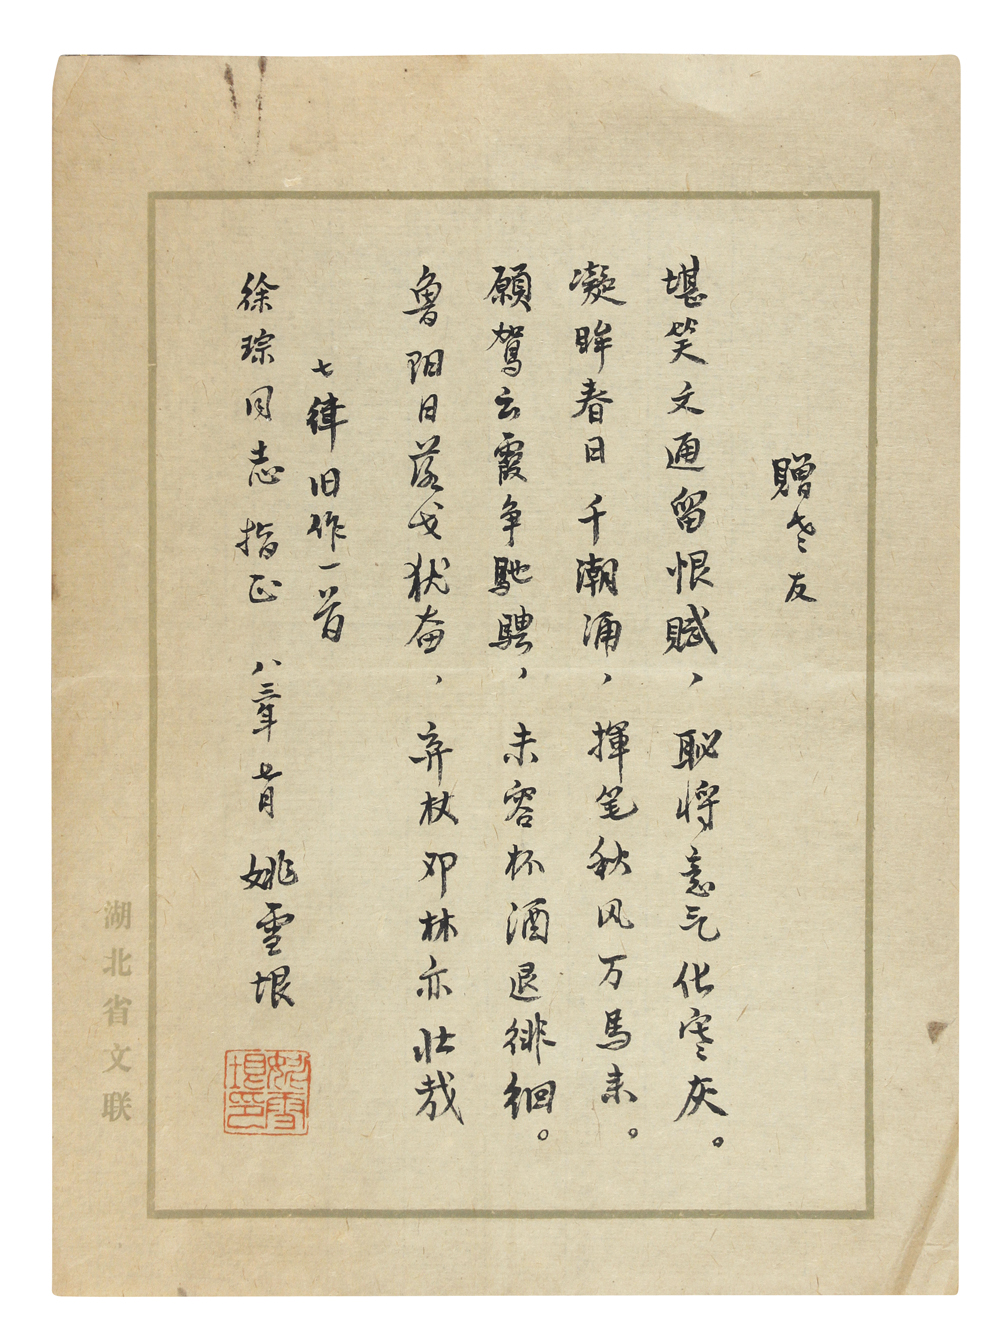 赠老友
堪笑文通留恨赋，耻将意气化寒灰。
凝眸春日千潮涌，挥笔秋风万马来。
願驾云霞争馳騁，未容杯酒退徘徊。
鲁阳日落戈犹奋，弃杖邓林亦壮哉
七律旧作一首
徐琮同志指正 八三年七月 姚雪垠
姚雪垠印
湖北省文联